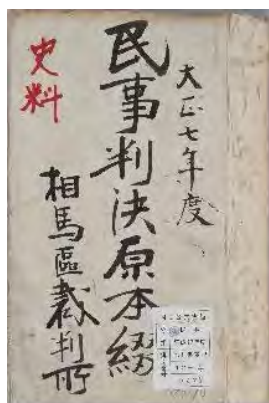 大正七年度
民事判決原本綴
史料
相馬區裁判所